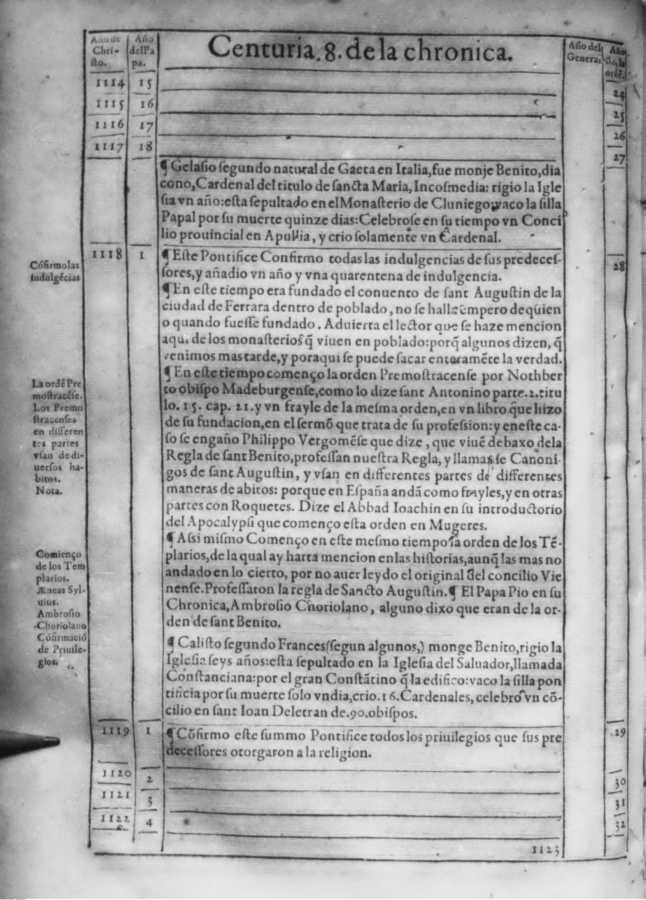 Año de Chri- sto.
Año del Pa pa.
Centuria .8. de la chronica.
Año del General
1114 15 24
1115 16 25
1116 17 26
1117 18 27
¶ Gelasio segundo natural de Gaeta en Italia, fue monje Benito, dia
cono, Cardenal del titulo de sancta Maria, Incosmedia: rigio la Igle
sia vn año: esta sepultado en el Monasterio de Cluniego, vaco la silla
Papal por su muerte quinze dias: Celebrose en su tiempo vn Conci
lio prouincial en Apullia, y crio solamente vn Cardenal.
1118 1 28
Cõfirmo las
indulgẽcias
¶ Este Pontifice Confirmo todas las indulgencias de sus predeces-
sores, y añadio vn año y vna quarentena de indulgencia.
¶ En este tiempo era fundado el conuento de sant Augustin de la
ciudad de Ferrara dentro de poblado, no se halla empero de quien
o quando fuesse fundado. Aduierta el lector que se haze mencion
aqui de los monasterios q̃ viuen en poblado: porq̃ algunos dizen, q̃
venimos mas tarde, y por aqui se puede sacar enteramẽte la verdad.
La ordẽ Pre
mostracẽse.
Los Premo
stracenses
en differen
tes partes
vsan de di-
uersos ha-
bitos.
Nota.
¶ En este tiempo començo la orden Premostracense por Nothber
to obispo Madeburgense, como lo dize sant Antonino parte.2. titu
lo. 15. cap. 21. y vn frayle de la mesma orden, en vn libro que hizo
de su fundacion, en el sermõ que trata de su profession: y en este ca-
so se engaño Philippo Vergomẽse que dize, que viuẽ debaxo de la
Regla de sant Benito, professan nuestra Regla, y llamas se Canoni-
gos de sant Augustin, y vsan en differentes partes de differentes
maneras de abitos: porque en España andã como frayles, y en otras
partes con Roquetes. Dize el Abbad Ioachin en su introductorio
del Apocalypsi que començo esta orden en Mugeres.
Comienço
de los Tem
plarios.
Æneas Syl-
uius.
Ambrosio
Choriolano
Cõfirmació
de Priuile-
gios.
¶ Assi mismo Començo en este mesmo tiempo la orden de los Tẽ-
plarios, de la qual ay harta mencion en las historias, aunq̃ las mas no
an dado en lo cierto, por no auer leydo el original del concilio Vie
nense. Professaron la regla de Sancto Augustin. ¶ El Papa Pio en su
Chronica, Ambrosio Choriolano, alguno dixo que eran de la or-
den de sant Benito.
¶ Calisto segundo Frances (segun algunos,) monge Benito, rigio la
Iglesia seys años: esta sepultado en la Iglesia del Saluador, llamada
Constanciana: por el gran Constãtino q̃ la edifico: vaco la silla pon
tificia por su muerte solo vn dia, crio. 16. Cardenales, celebro vn cõ-
cilio en sant Ioan Deletran de .90. obispos.
1119 1 29
¶ Cõfirmo este summo Pontifice todos los priuilegios que sus pre
decessores otorgaron a la religion.
1120 2 30
1121 3 31
1122 4 32
1123